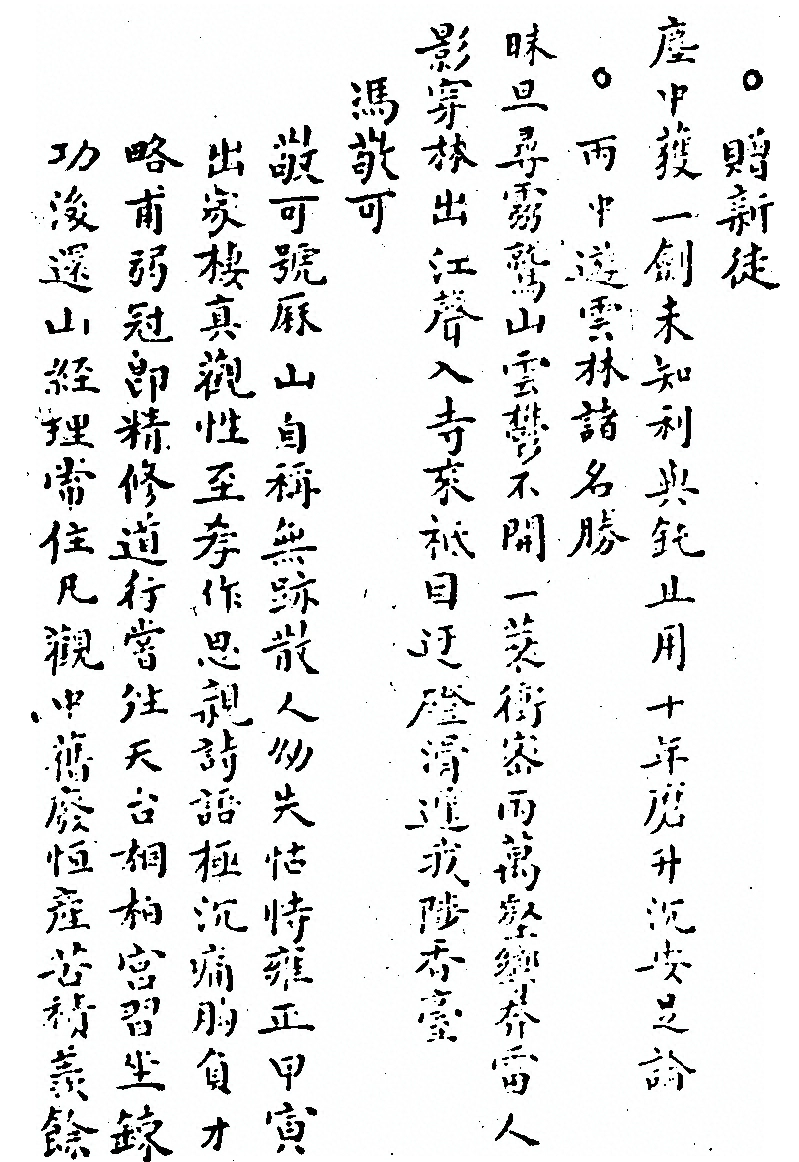 ○贈新徒
塵中獲一劍未知利與鈍止用十年磨升沉安足論
○雨中遊雲林諸名勝
昧旦尋靈鷲山雲鬱不開一筞衝密雨萬壑響奔雷人
影穿林出江聲入寺來祇因迂磴滑遲我陟香臺
馮敬可
敬可號厤山自稱無跡散人幼失怙恃雍正甲寅
出家棲真觀性至孝作思親詩語極沉痛胸負才
略甫弱冠卽精修道行嘗往天台桐柏宮習坐鍊
功後還山經理常住凡觀中舊廢恒產苦積羨餘